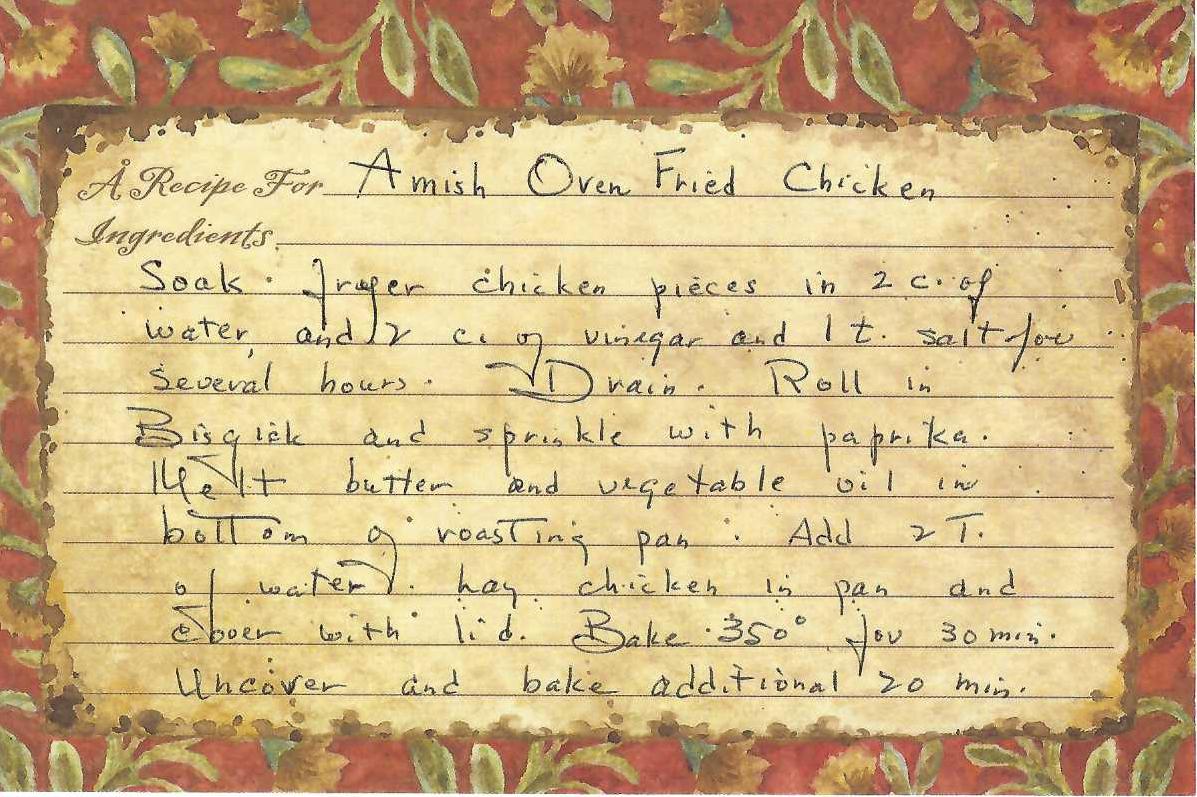 A Recipe For Amish Oven Fried Chicken
Ingredients
Soak fryer chicken pieces in 2 c. of
water, and 2 c. of vinegar and 1 t. salt for
several hours. Drain. Roll in
Bisqick and sprinkle with paprika.
Melt butter and vegetable oil in
bottom of roasting pan. Add 2 T.
of water. Lay chicken in pan and
cover with lid. Bake 350° for 30 min.
Uncover and bake additional 20 min.